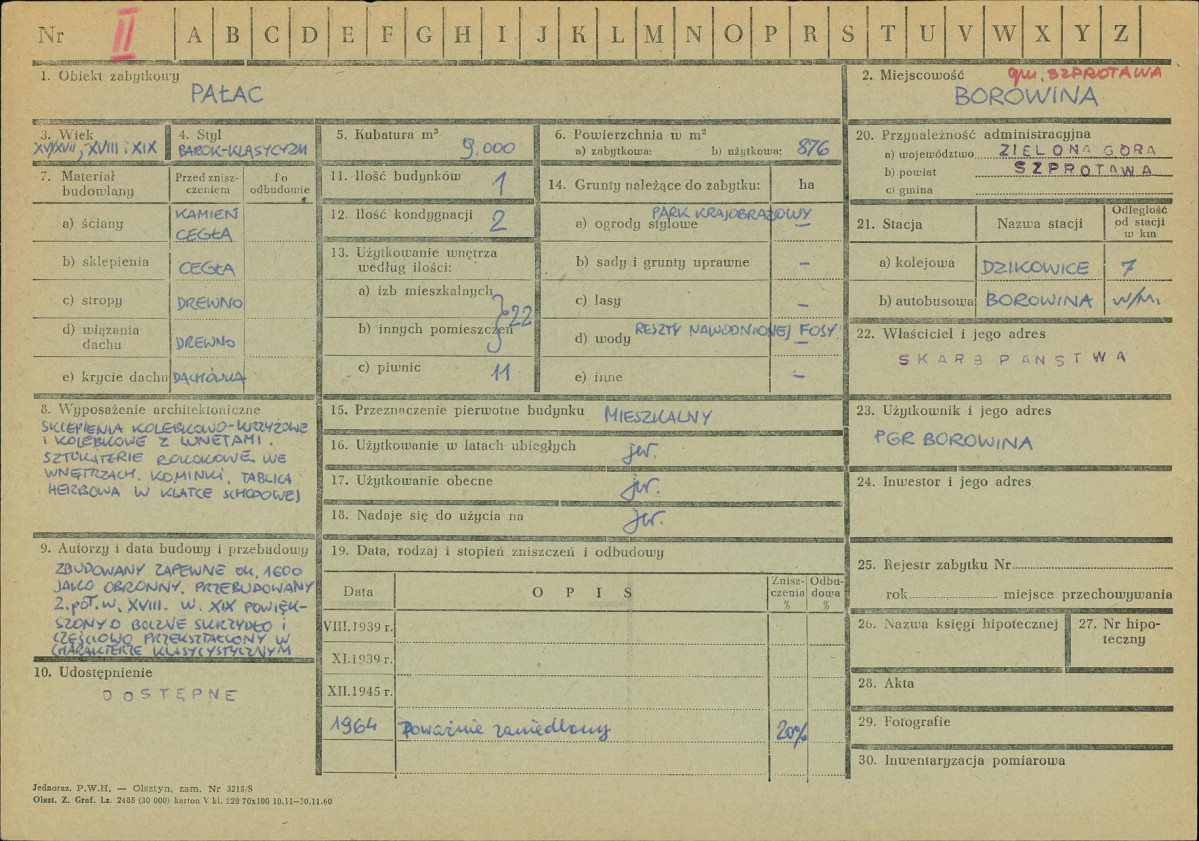 Nr II A B C D E F G H I J K L M N O P R S T U V W X Y Z
1. Obiekt zabytkowy
PAŁAC
2. Miejscowość
gm. SZPROTAWA
BOROWINA
3. Wiek
XVI/XVII, XVIII i XIX
4. Styl
BAROK-KLASYCYZM
5. Kubatura m³
9.000
6. Powierzchnia w m²
a) zabytkowa: b) użytkowa: 876
7. Materiał budowlany
Przed zniszczeniem
Po odbudowie
a) ściany
KAMIEŃ
CEGŁA
b) sklepienia CEGŁA
c) stropy DREWNO
d) wiązania dachu DREWNO
e) krycie dachu DACHÓWKA
8. Wyposażenie architektoniczne
SKLEPIENIA KOLEBKOWO-KRZYŻOWE
I KOLEBKOWE Z LUNETAMI.
SZTUKATERIE ROKOKOWE WE
WNĘTRZACH. KOMINKI, TABLICA
HERBOWA W KLATCE SCHODOWEJ
9. Autorzy i data budowy i przebudowy
ZBUDOWANY ZAPEWNE OK. 1600
JAKO OBRONNY. PRZEBUDOWANY
2. POŁ. W. XVIII. W. XIX POWIĘK-
SZONY O BOCZNE SKRZYDŁO I
CZĘŚCIOWO PRZEKSZTAŁCONY W
CHARAKTERZE KLASYCYSTYCZNYM
10. Udostępnienie
DOSTĘPNE
11. Ilość budynków 1
12. Ilość kondygnacji 2
13. Użytkowanie wnętrza
według ilości:
a) izb mieszkalnych
b) innych pomieszczeń
22
c) piwnic 11
14. Grunty należące do zabytku: ha
PARK KRAJOBRAZOWY
a) ogrody stylowe —
b) sady i grunty uprawne —
c) lasy —
RESZTY NAWODNIONEJ FOSY
d) wody —
e) inne —
15. Przeznaczenie pierwotne budynku MIESZKALNY
16. Użytkowanie w latach ubiegłych jw.
17. Użytkowanie obecne jw.
18. Nadaje się do użycia na jw.
19. Data, rodzaj i stopień zniszczeń i odbudowy
Data OPIS Zniszczenia % Odbudowa %
VIII.1939 r.
XI.1939 r.
XII.1945 r.
1964 Poważnie zaniedbany 20%
20. Przynależność administracyjna
a) województwo ZIELONA GÓRA
b) powiat SZPROTAWA
c) gmina
21. Stacja Nazwa stacji Odległość od stacji w km
a) kolejowa DZIKOWICE 7
b) autobusowa BOROWINA w/m.
22. Właściciel i jego adres
SKARB PAŃSTWA
23. Użytkownik i jego adres
PGR BOROWINA
24. Inwestor i jego adres
25. Rejestr zabytku Nr
rok miejsce przechowywania
26. Nazwa księgi hipotecznej
27. Nr hipoteczny
28. Akta
29. Fotografie
30. Inwentaryzacja pomiarowa
Jednoraz. P.W.H. — Olsztyn, zam. Nr 3215/S
Olszt. Z. Graf. Lz. 2455 (30 000) karton V kl. 220 70x100 10.11—30.11.60